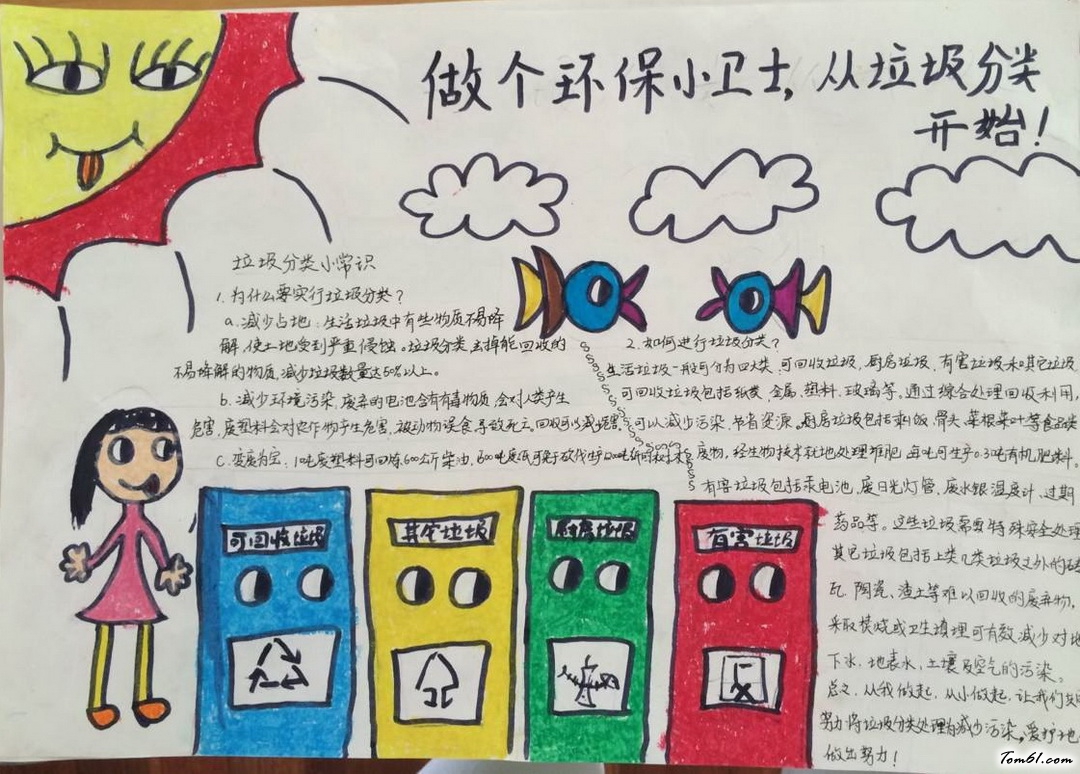 做个环保小卫士，从垃圾分类
开始！
垃圾分类小常识
1.为什么要实行垃圾分类？
a.减少占地：生活垃圾中有些物质不易降
解，使土地受到严重侵蚀。垃圾分类，去掉能回收的
不易降解的物质，减少垃圾数量达50%以上。
b.减少环境污染，废弃的电池含有有毒物质，会对人类产生
危害，废塑料会对农作物产生危害，被动物误食导致死亡，回收可以减
C.变废为宝：1吨废塑料可回炼600公斤柴油，
2.如何进行垃圾分类？
生活垃圾一般可分为四大类，可回收垃圾，厨房垃圾，有害垃圾和其它垃圾
可回收垃圾包括纸类，金属，塑料，玻璃等，通过综合处理回收利用，
可以减少污染，节省资源。厨房垃圾包括剩饭，骨头，菜根菜叶等食品类
废物，经生物技术就地处理堆肥，每吨可生产0.3吨有机肥料。
有害垃圾包括汞电池，废日光灯管，废水银温度计，过期
药品等。这些垃圾需要特殊安全处理
其它垃圾包括上类几类垃圾之外的砖
瓦，陶瓷、渣土等难以回收的废弃物，
采取焚烧或卫生填埋可有效减少对地
下水，地表水，土壤及空气的污染。
总之，从我做起，从小做起，让我们共同
努力将垃圾分类处理为减少污染，爱护地
做出努力！
可回收垃圾
其它垃圾
厨房垃圾
有害垃圾
Tom61.com